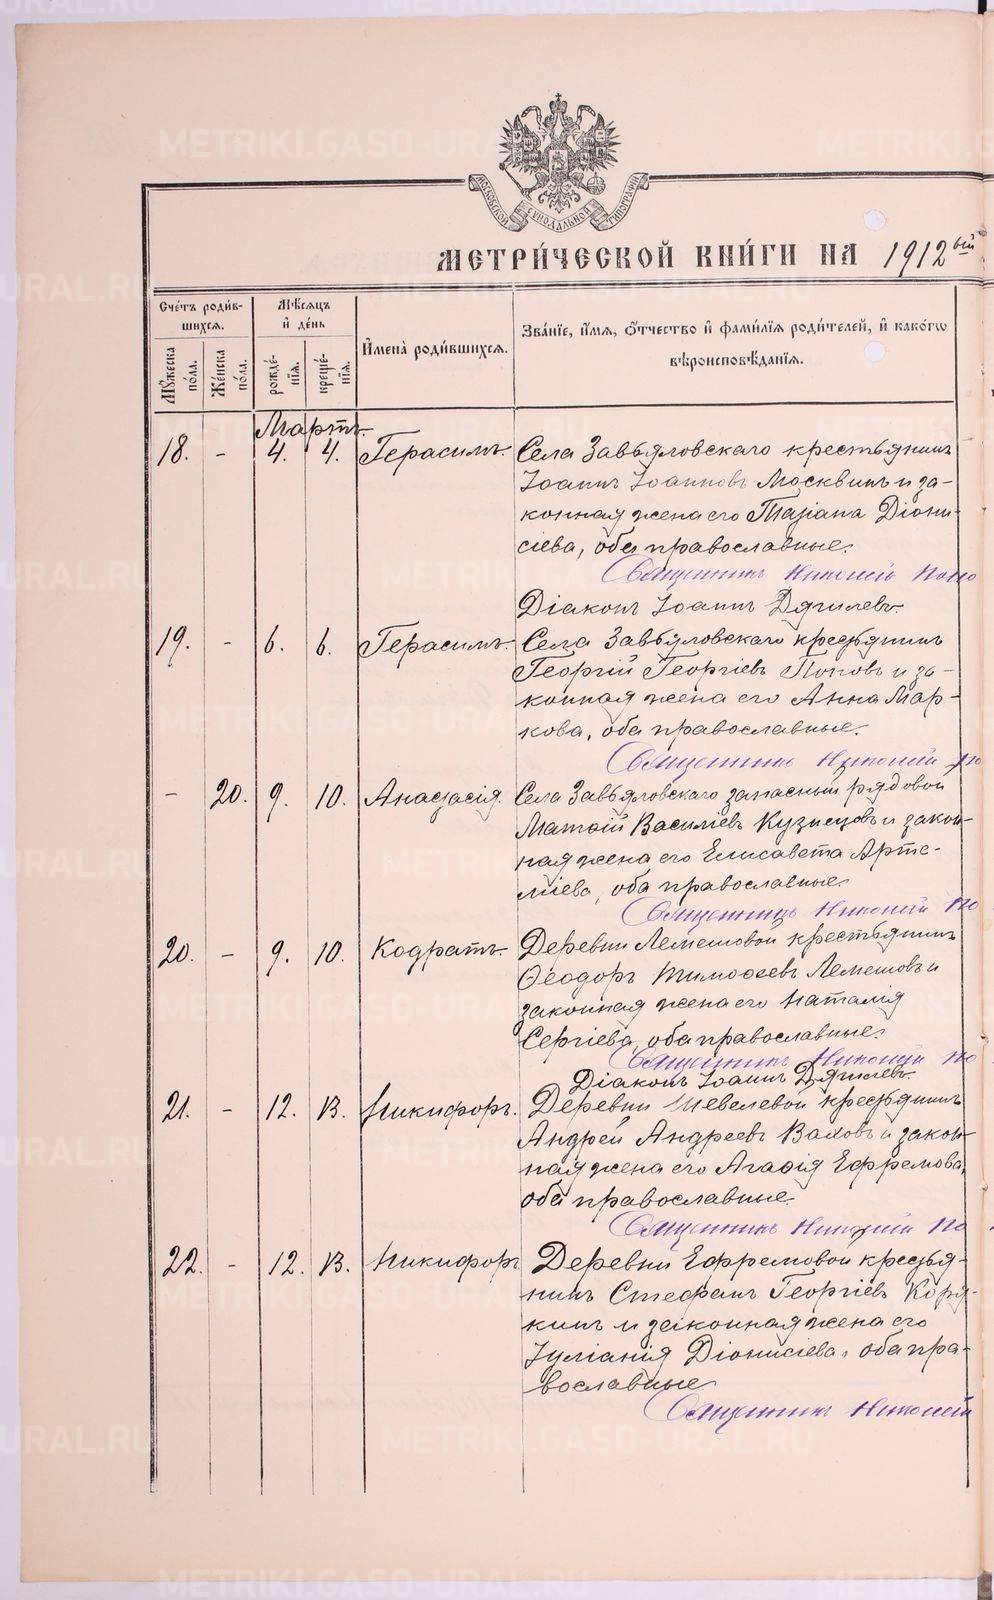 МОСКОВСКОЙ СѴНОДАЛЬНОЙ ТИПОГРАФІИ
МЕТРИ́ЧЕСКОЙ КНИ́ГИ НА 1912ый
Сче́тъ роди́в-
шихсѧ.
Мѣ́сѧцъ
и҆ де́нь
И҆мена̀ роди́вшихсѧ.
Зва́нїе, и҆́мѧ, ѻ҆́тчество и҆ фами́лїѧ роди́телей, и҆ како́гѡ
вѣроисповѣ́данїѧ.
Мꙋ́жеска
по́ла.
Же́нска
по́ла.
рожде́-
нїѧ.
креще́-
нїѧ.
Мартъ.
18. - 4. 4. Герасимъ. Села Завьяловскаго крестьянинъ
Іоаннъ Іоанновъ Москвинъ и за-
конная жена его Татіана Діони-
сіева, оба православные.
Священникъ Николай Попо
Діаконъ Іоаннъ Дягилевъ.
19. - 6. 6. Герасимъ. Села Завьяловскаго крестьянинъ
Георгій Георгіевъ Поповъ и за-
конная жена его Анна Мар-
кова, оба православные.
Священникъ Николай По
- 20. 9. 10. Анастасія. Села Завьяловскаго запасный рядовой
Матѳій Василіевъ Кузнецовъ и закон-
ная жена его Елисавета Арте-
міева, оба православные.
Священникъ Николай По
20. - 9. 10. Кодратъ. Деревни Лемешовой крестьянинъ
Ѳеодоръ Тимоѳеевъ Лемешовъ и
законная жена его Наталія
Сергіева, оба православные.
Священникъ Николай По
Діаконъ Іоаннъ Дягилевъ.
21. - 12. 13. Никифоръ. Деревни Шевелевой крестьянинъ
Андрей Андреевъ Валовъ и закон-
ная жена его Агаѳія Ефремова,
оба православные.
Священникъ Николай По
22. - 12. 13. Никифоръ Деревни Ефремовой крестья-
нинъ Стефанъ Георгіевъ Коря-
кинъ и законная жена его
Іуліанія Діонисіева, оба пра-
вославные
Священникъ Николай
METRIKI.GASO-URAL.RU